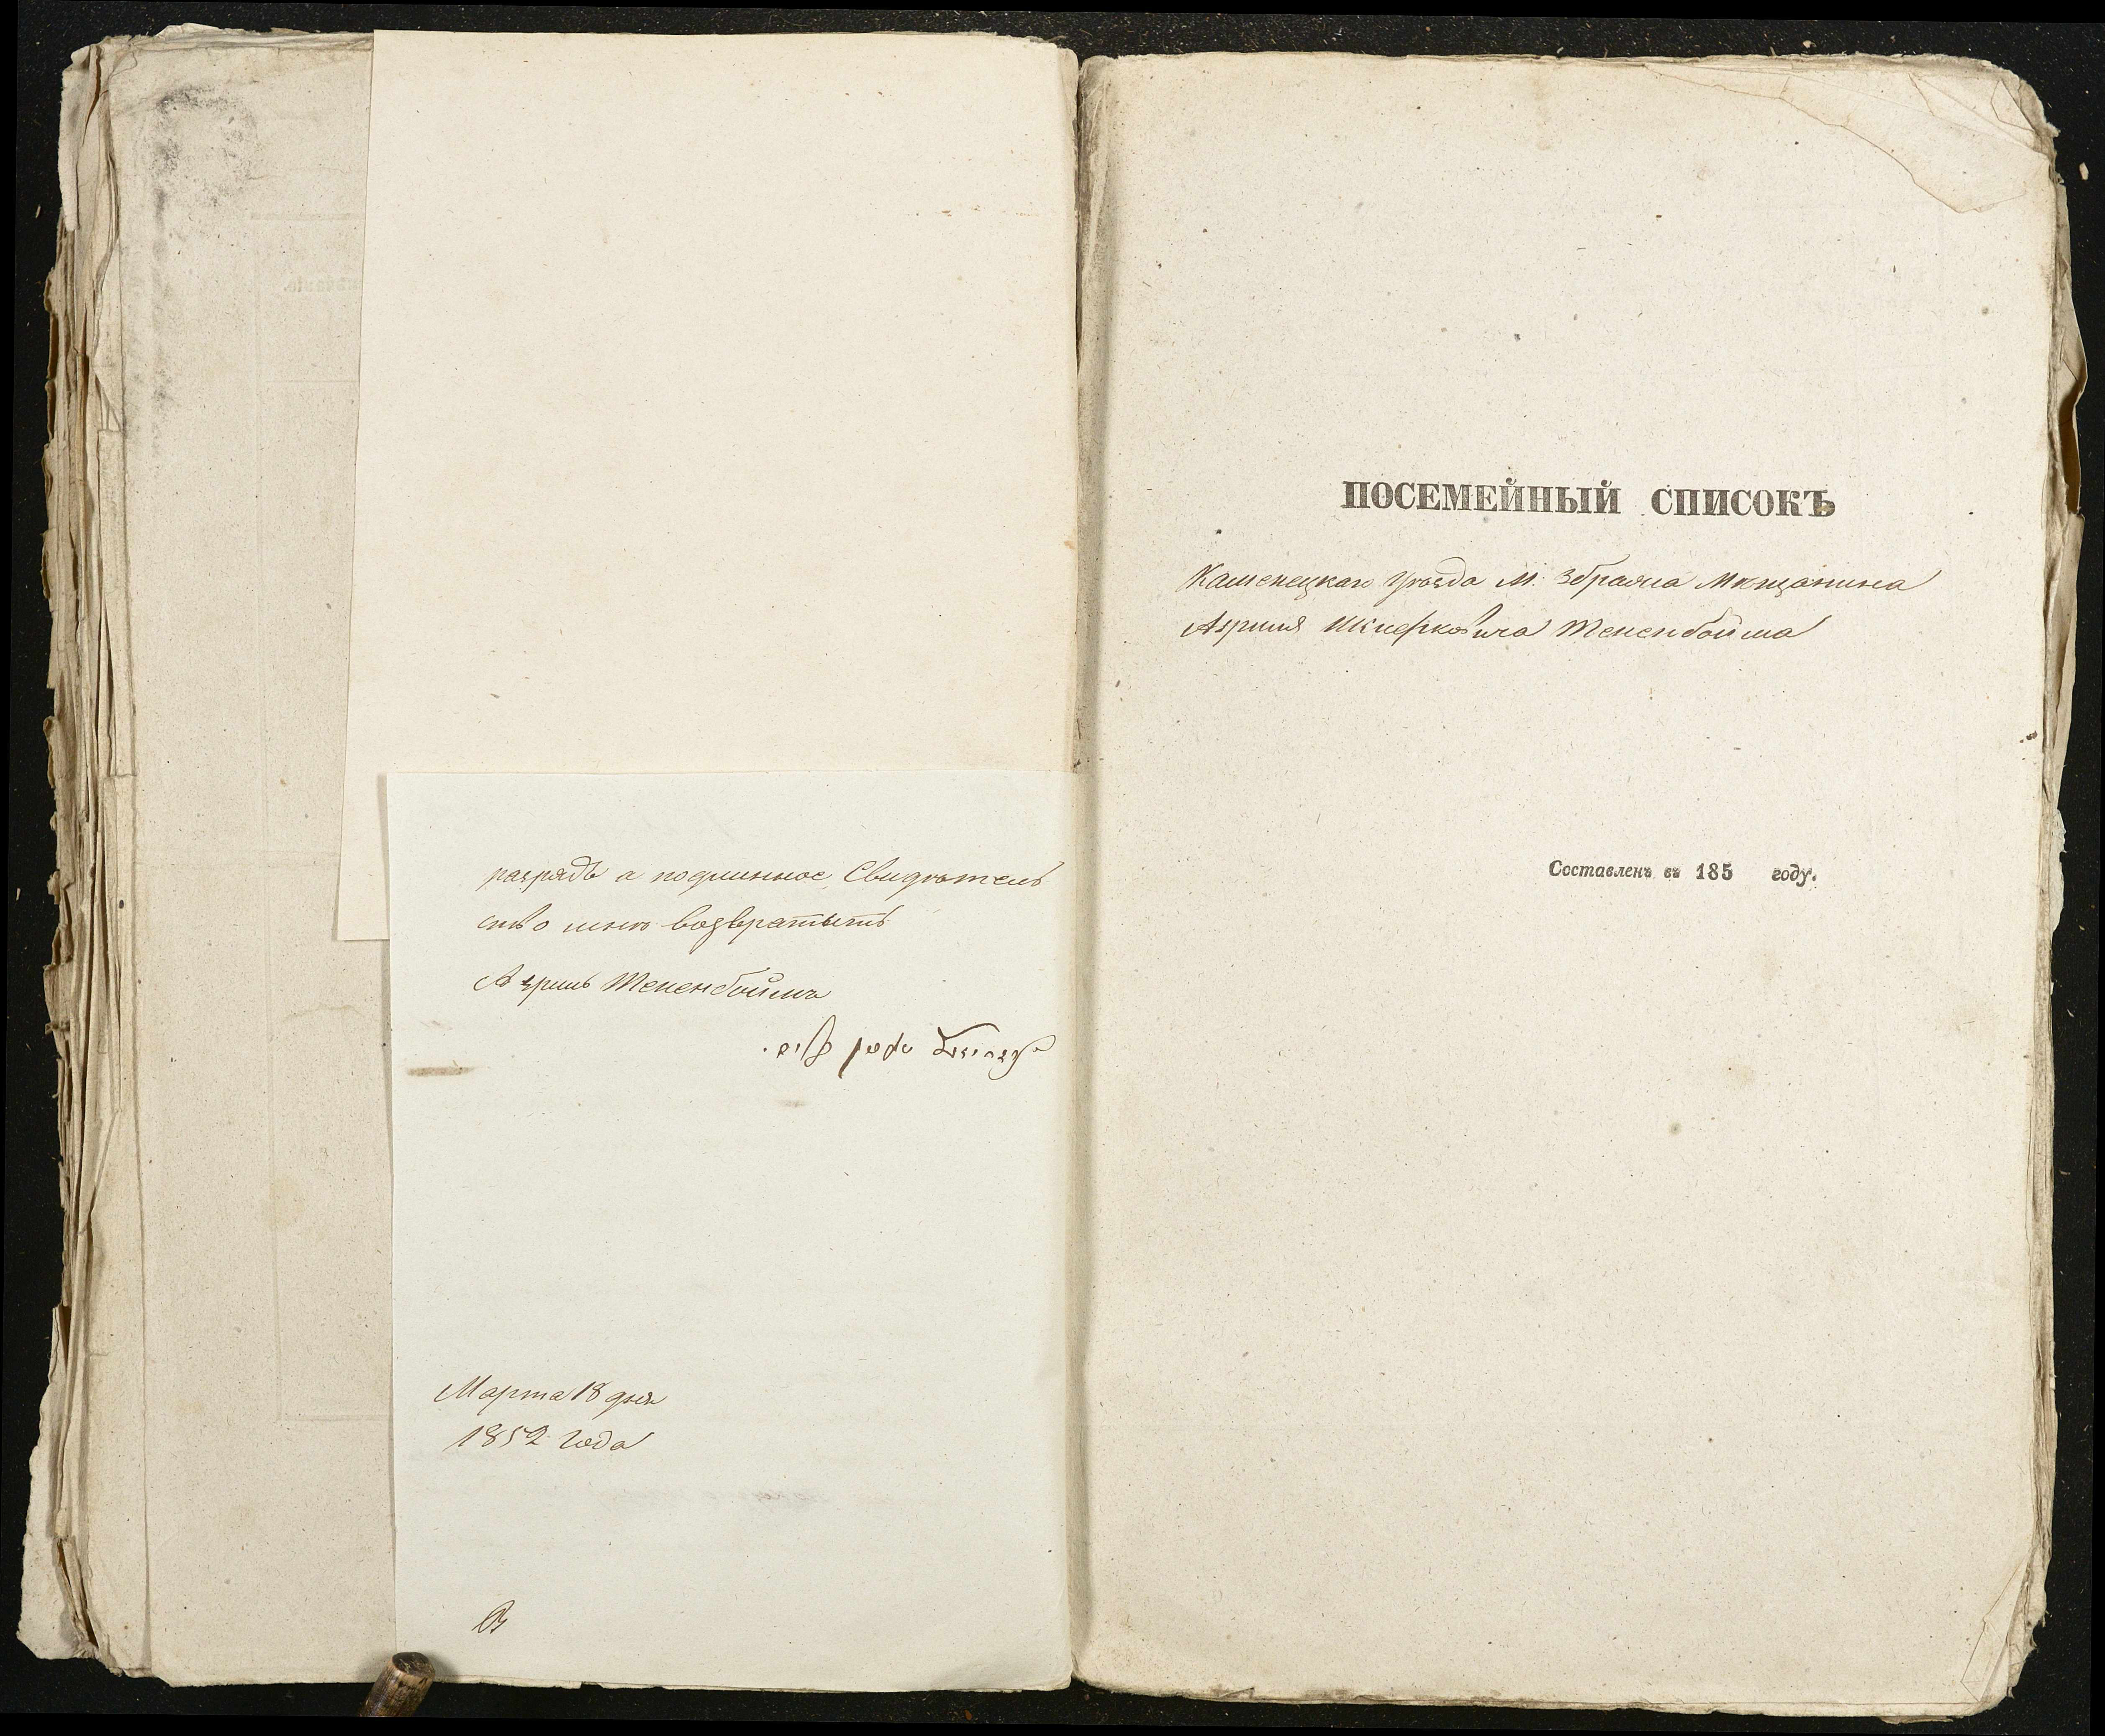 разрядъ а подлинное Свидѣтель
ство мнѣ возвратытъ
Азриль Тененбоймъ
Марта 18 дня
1852 года
ПОСЕМЕЙНЫЙ СПИСОКЪ
Каменецкаго Уѣзда М. Збрыжа Мѣщанина
Азриля Тененбойма
Составленъ въ 185 году.